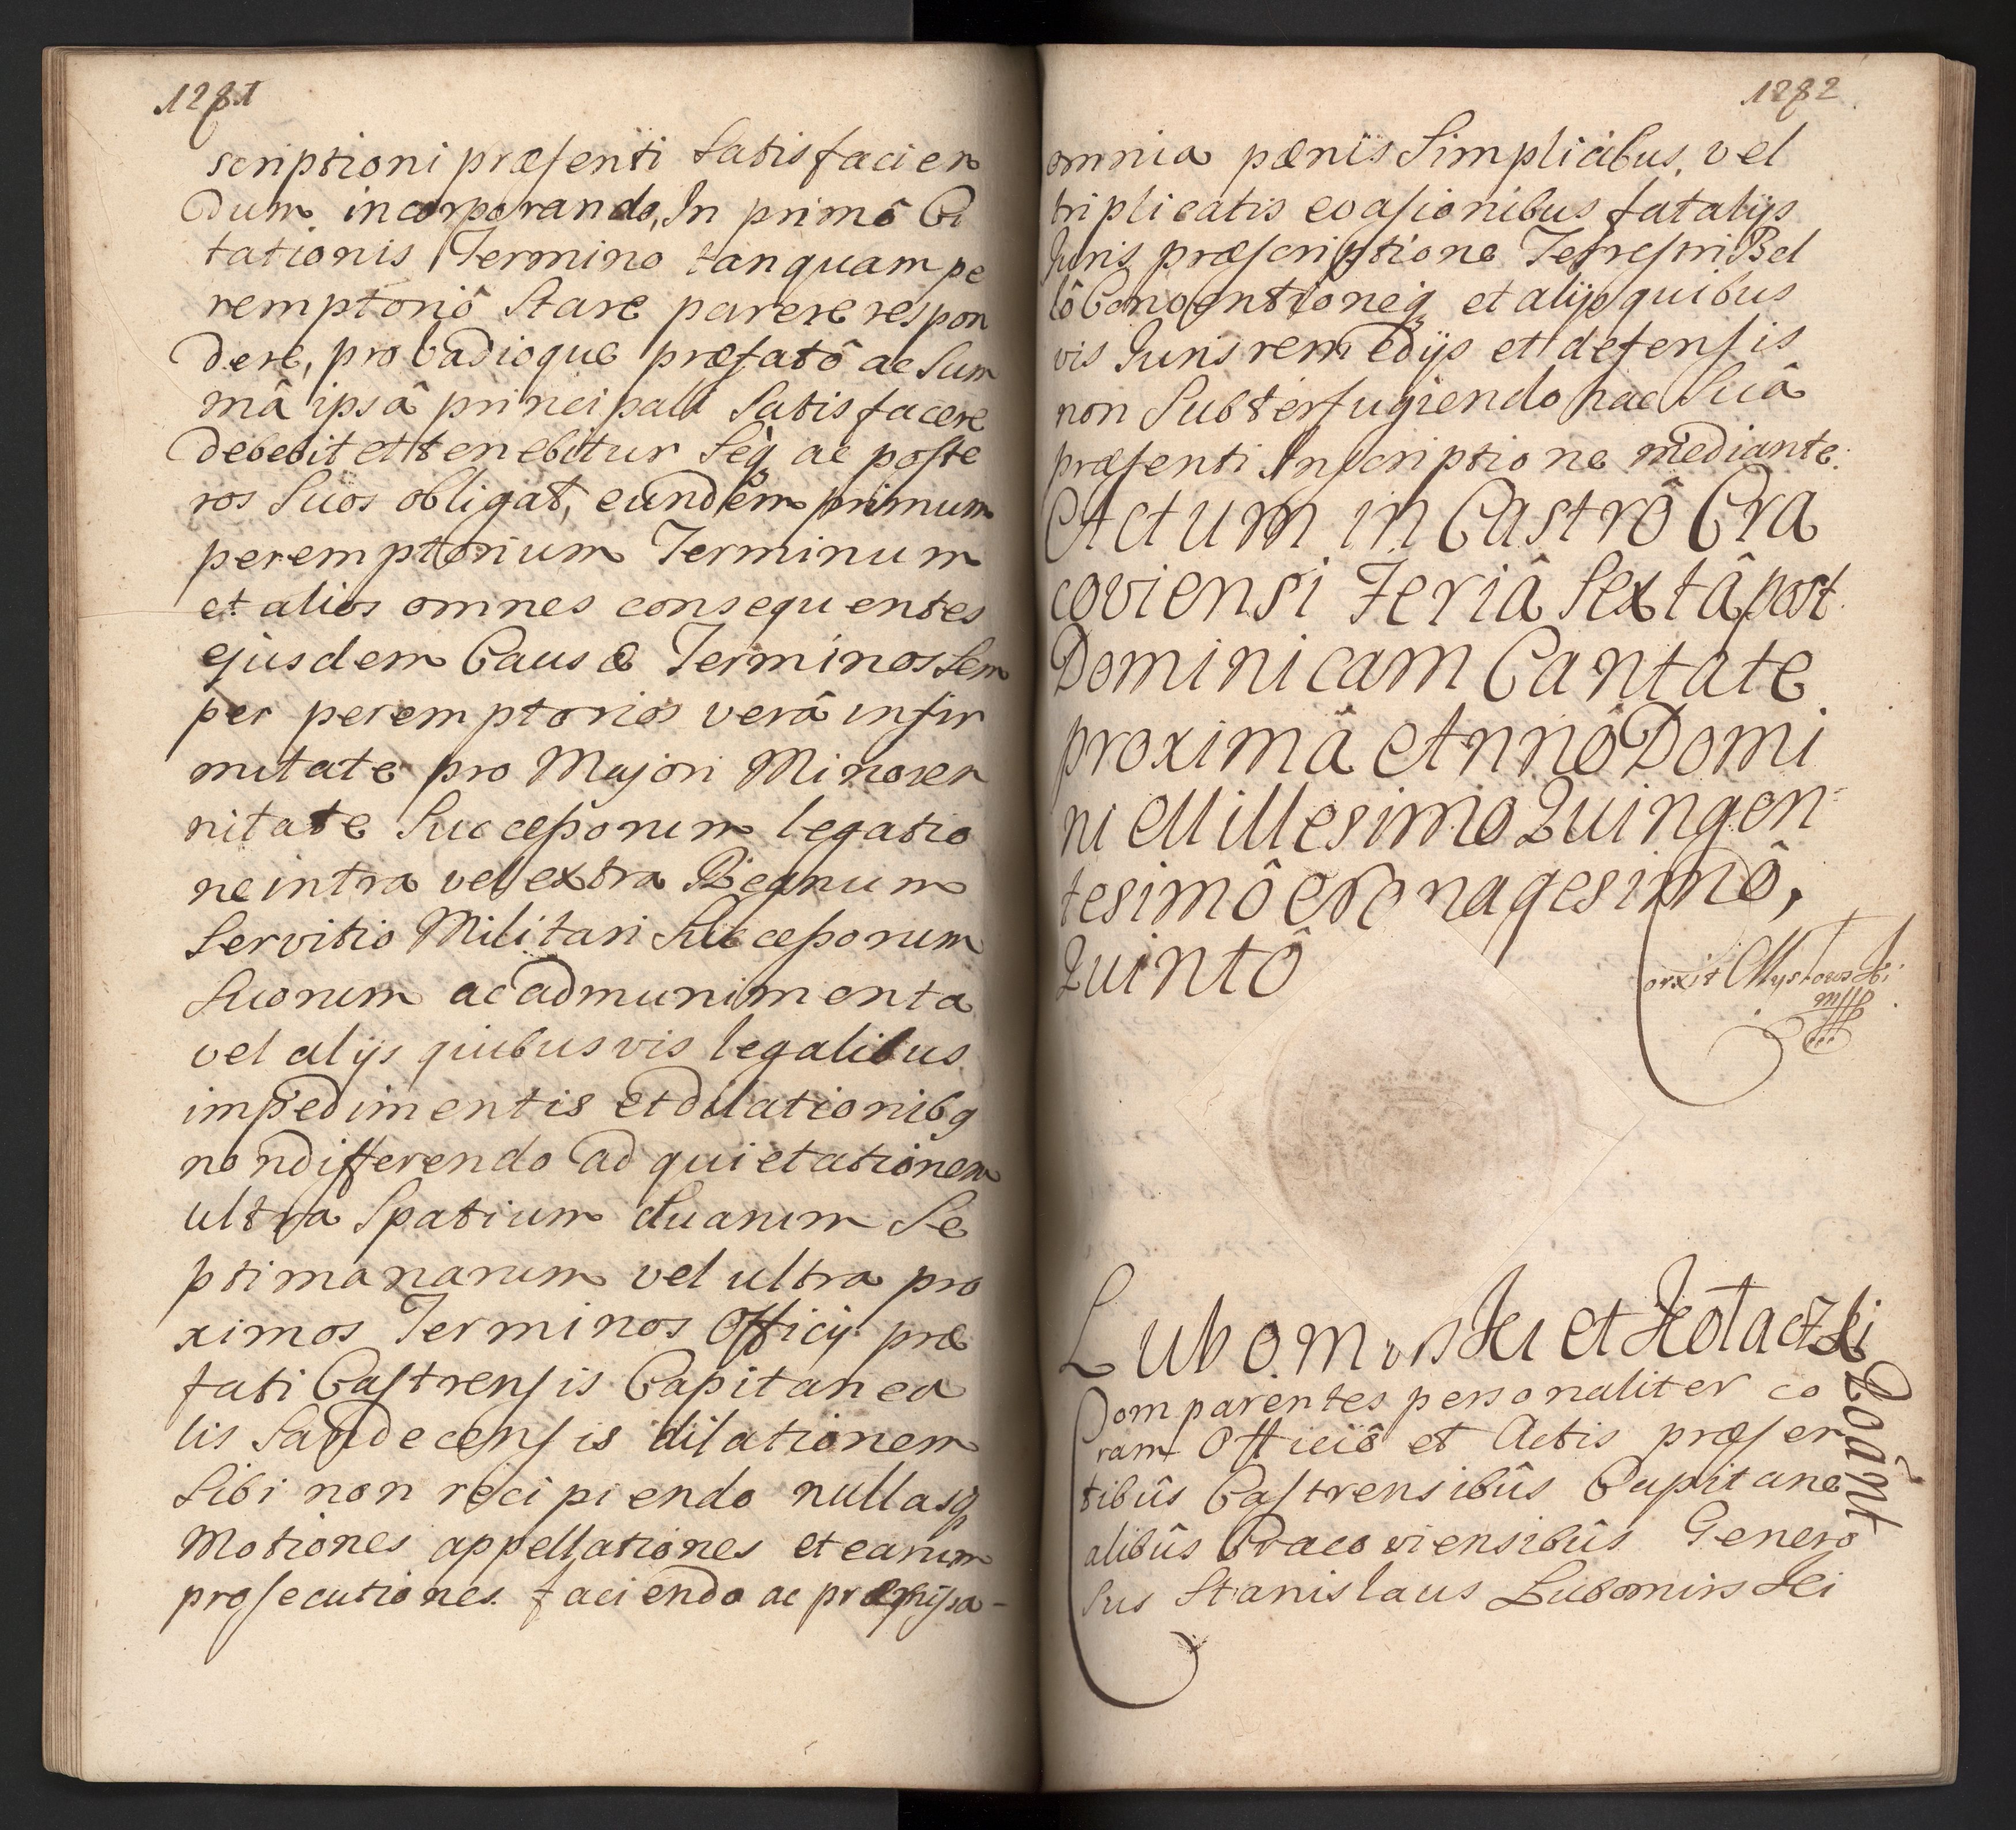 1281
scriptioni præsenti Satisfacien
dum incorporando, In primô Ci
tationis Termino tanquam pe
remptoriô Stare parere respon
dere, pro vadioque præfatô ac Sum
mâ ipsâ principali Satisfacere
debebit et tenebitur Seq ac poste
ros Suos obligat, eundem primum
peremptorium Terminum
et alios omnes consequentes
ejusdem Causæ Terminos Sem
per peremptorios verâ infir
mitate pro Majori Minoren
nitate Successorum legatio
ne intra vel extra Regnum
Servitio Militari Successorum
Suorum ac ad munimenta
vel alijs quibusvis legalibus
impedimentis et dilationibq
non differendo ad quietationem
ultra Spatium duarum Se
ptimanarum vel ultra pro
ximos Terminos Officij præ
fati Castrensis Capitanea
lis Sandecensis dilationem
Sibi non recipiendo nullasq
Motiones appellationes et earum
prosecutiones faciendo ac præmissa-
1282
omnia pænis Simplicibus, vel
triplicatis evasionibus fatalijs
Juris præscriptione Terrestri Bel
lô Conventioneq et alijs quibus
vis Juris remedijs et defensis
non Subterfugiendo hac Suâ
præsenti Inscriptione mediante.
Actum in Castrô Cra
coviensi Feriâ Sextâ post
Dominicam Cantate
proximâ Annô Domi
ni Millesimo Quingen
tesimô Nonagesimô,
Quintô
Lubomirski et Kotaczki
Roânt
Comparentes personaliter co
ram Officiô et Actis præsen
tibûs Castrensibûs Capitane
alibûs Cracoviensibûs Genero
sus Stanislaus Lubomirski